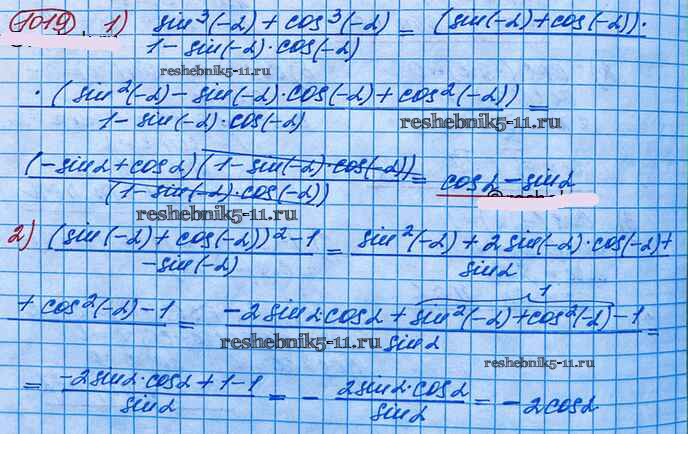 1019 1) sin³(-α) + cos³(-α) / 1 - sin(-α)·cos(-α) = (sin(-α) + cos(-α))·
reshebnik5-11.ru
·(sin²(-α) - sin(-α)·cos(-α) + cos²(-α)) / 1 - sin(-α)·cos(-α) =
reshebnik5-11.ru
(-sinα + cosα)(1 - sin(-α)·cos(-α)) / (1 - sin(-α)·cos(-α)) = cosα - sinα
reshebnik5-11.ru
2) (sin(-α) + cos(-α))² - 1 / -sin(-α) = sin²(-α) + 2sin(-α)·cos(-α) + / sinα
+ cos²(-α) - 1 = -2sinα·cosα + sin²(-α) + cos²(-α) - 1 / sinα =
1
reshebnik5-11.ru
reshebnik5-11.ru
= -2sinα·cosα + 1 - 1 / sinα = - 2sinα·cosα / sinα = -2cosα